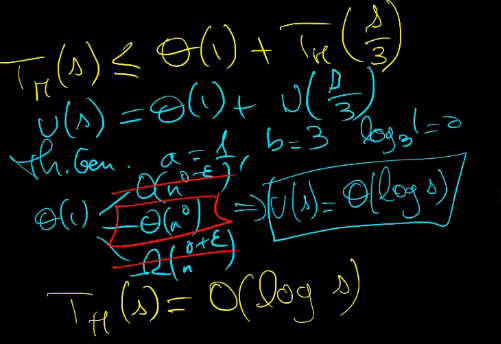 T_H(s) ≤ Θ(1) + T_H(s/3)
U(s) = Θ(1) + U(s/3)
Th. Gen. a = 1, b = 3 log₃1 = 0
O(n^(0-ε))
Θ(1) Θ(n⁰) ⇒ U(s) = Θ(log s)
Ω(n^(0+ε))
T_H(s) = O(log s)